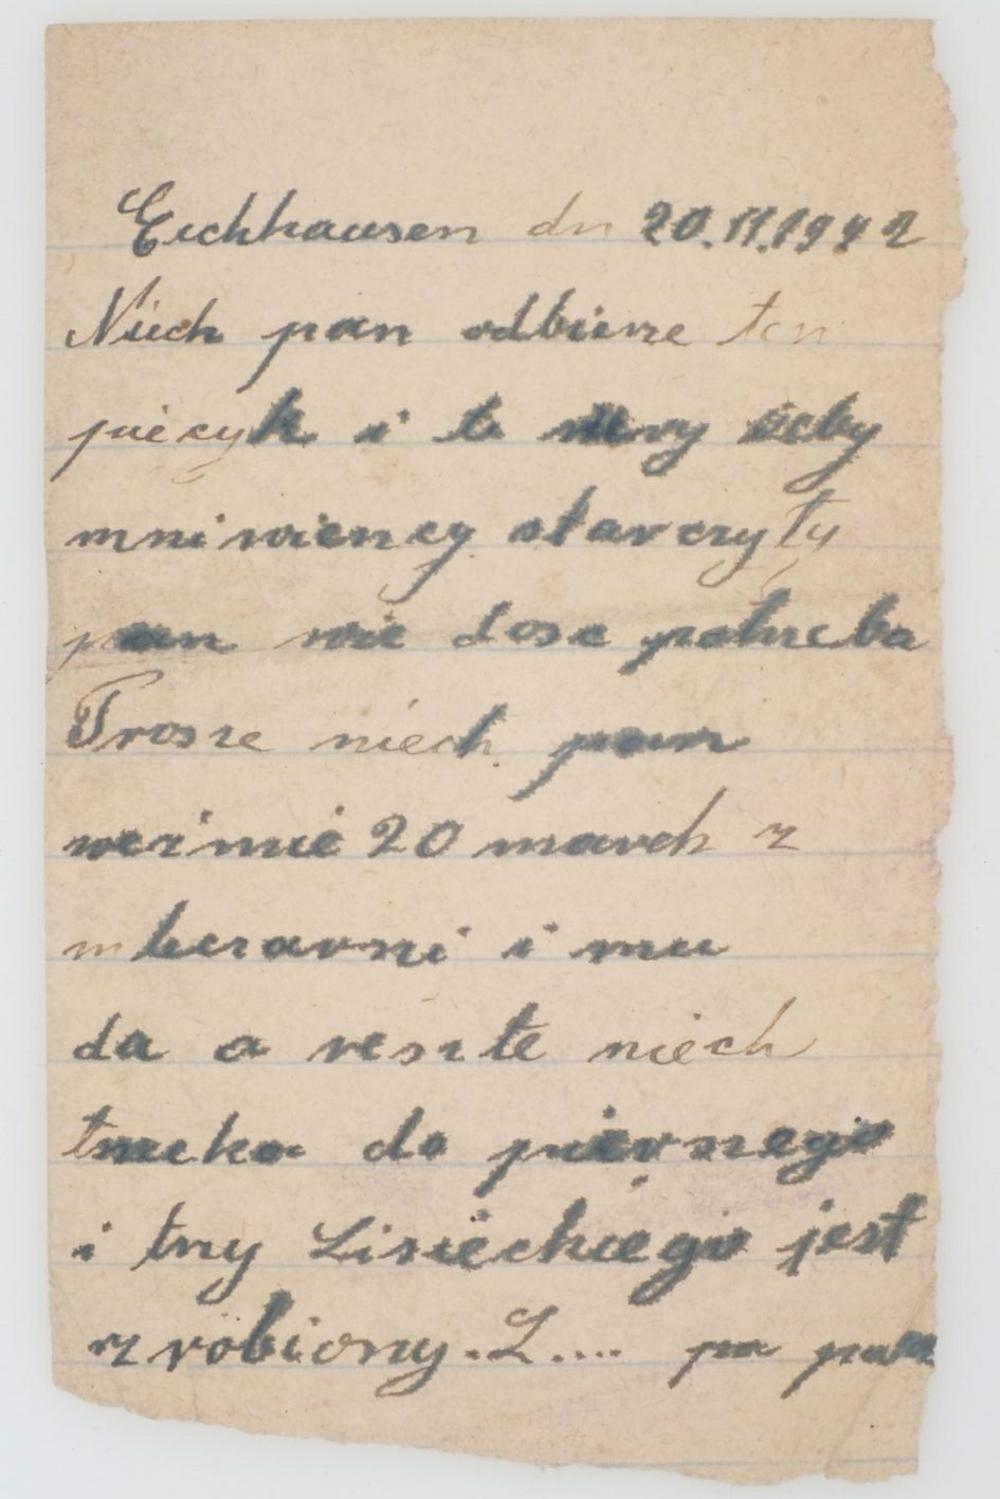 Eichhausen dn 20.11.1942
Niech pan odbierze ten
piecyk i te rury żeby
mni wiency starczyły
pan wie dosc potrzeba
Prosze niech pan
wezmie 20 march z
i mu
da a reszte niech
czeka do pierszego
i trzy Lisieckiego jest
zrobiony. L.... pa pan